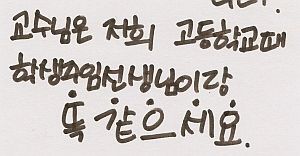 니다.
교수님은 저희 고등학교때
학생주임선생님이랑
똑 같으세요.